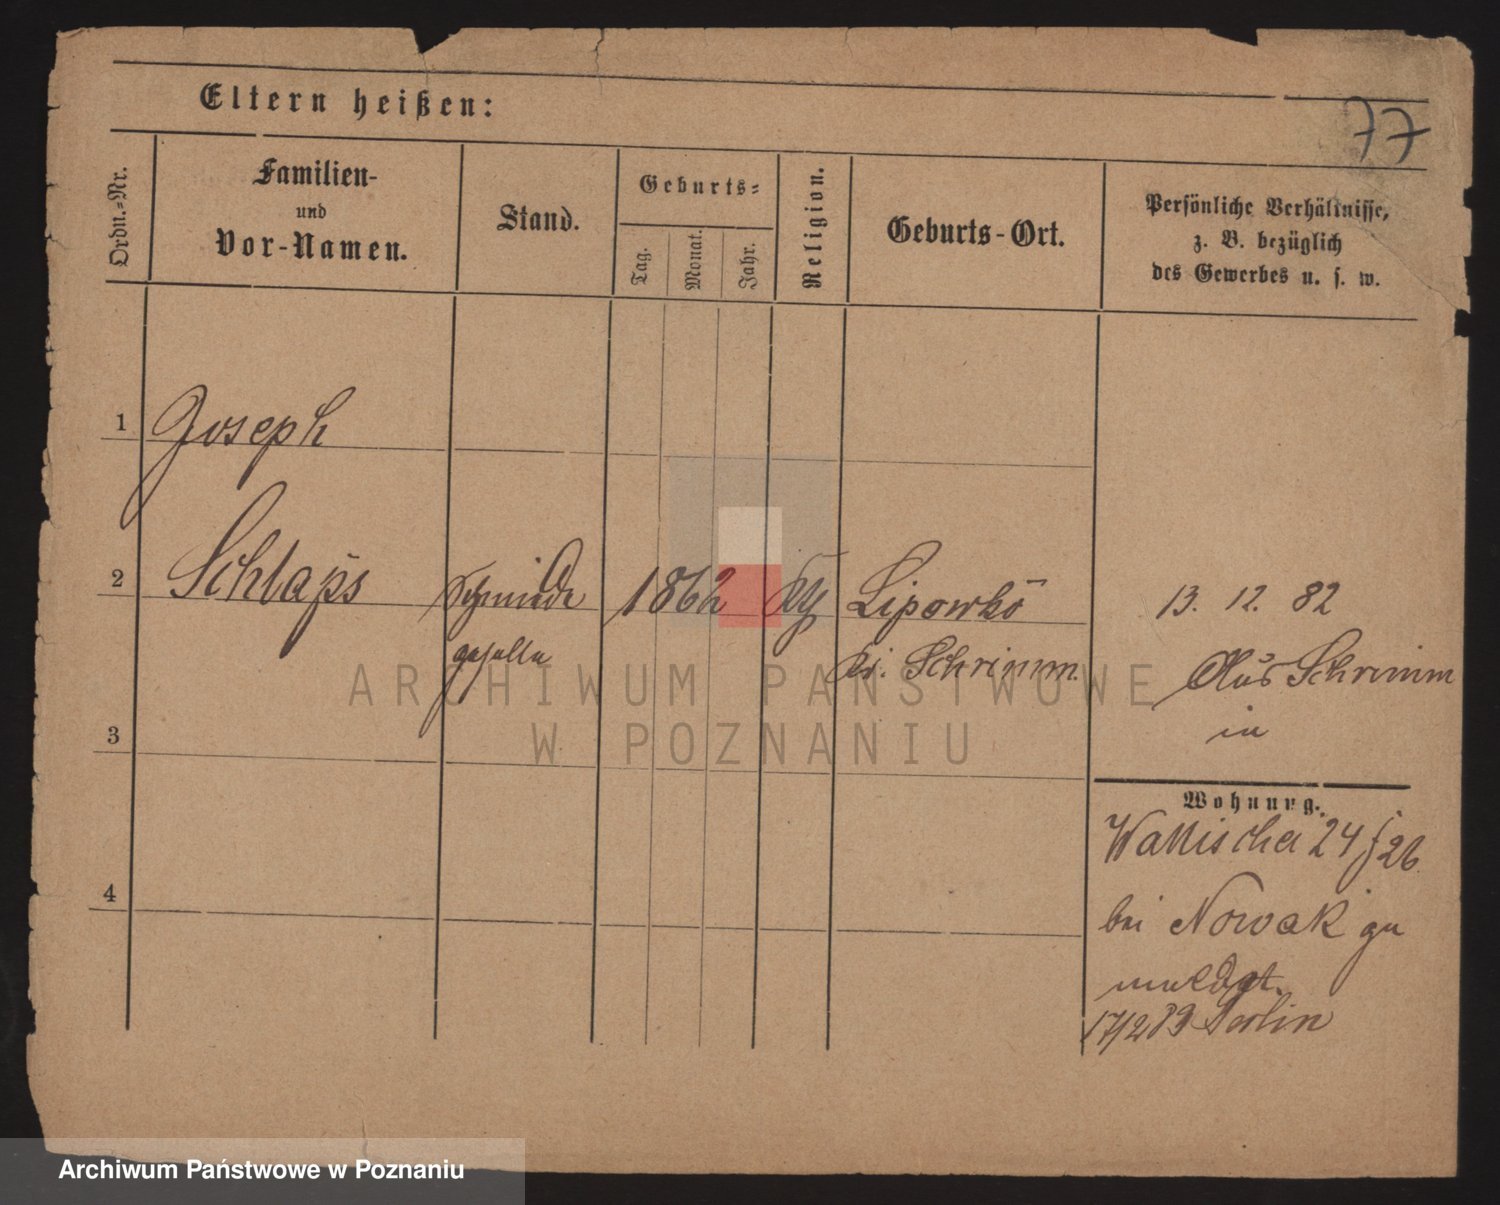 77
Eltern heißen:
Ordn.-Nr.
Familien-
und
Vor-Namen.
Stand.
Geburts-
Tag.
Monat.
Jahr.
Religion.
Geburts-Ort.
Persönliche Verhältnisse,
z. B. bezüglich
des Gewerbes u. s. w.
1 Joseph
2 Schlaps Schmiede 1862 Lipowko 13. 12. 82
geselle Kr. Schrimm. Aus Schrimm
in
3
Wohnung.
Wallischei 24/26
4
bei Nowak ge
meldet.
17/2 83 Berlin
ARCHIWUM PAŃSTWOWE
W POZNANIU
Archiwum Państwowe w Poznaniu